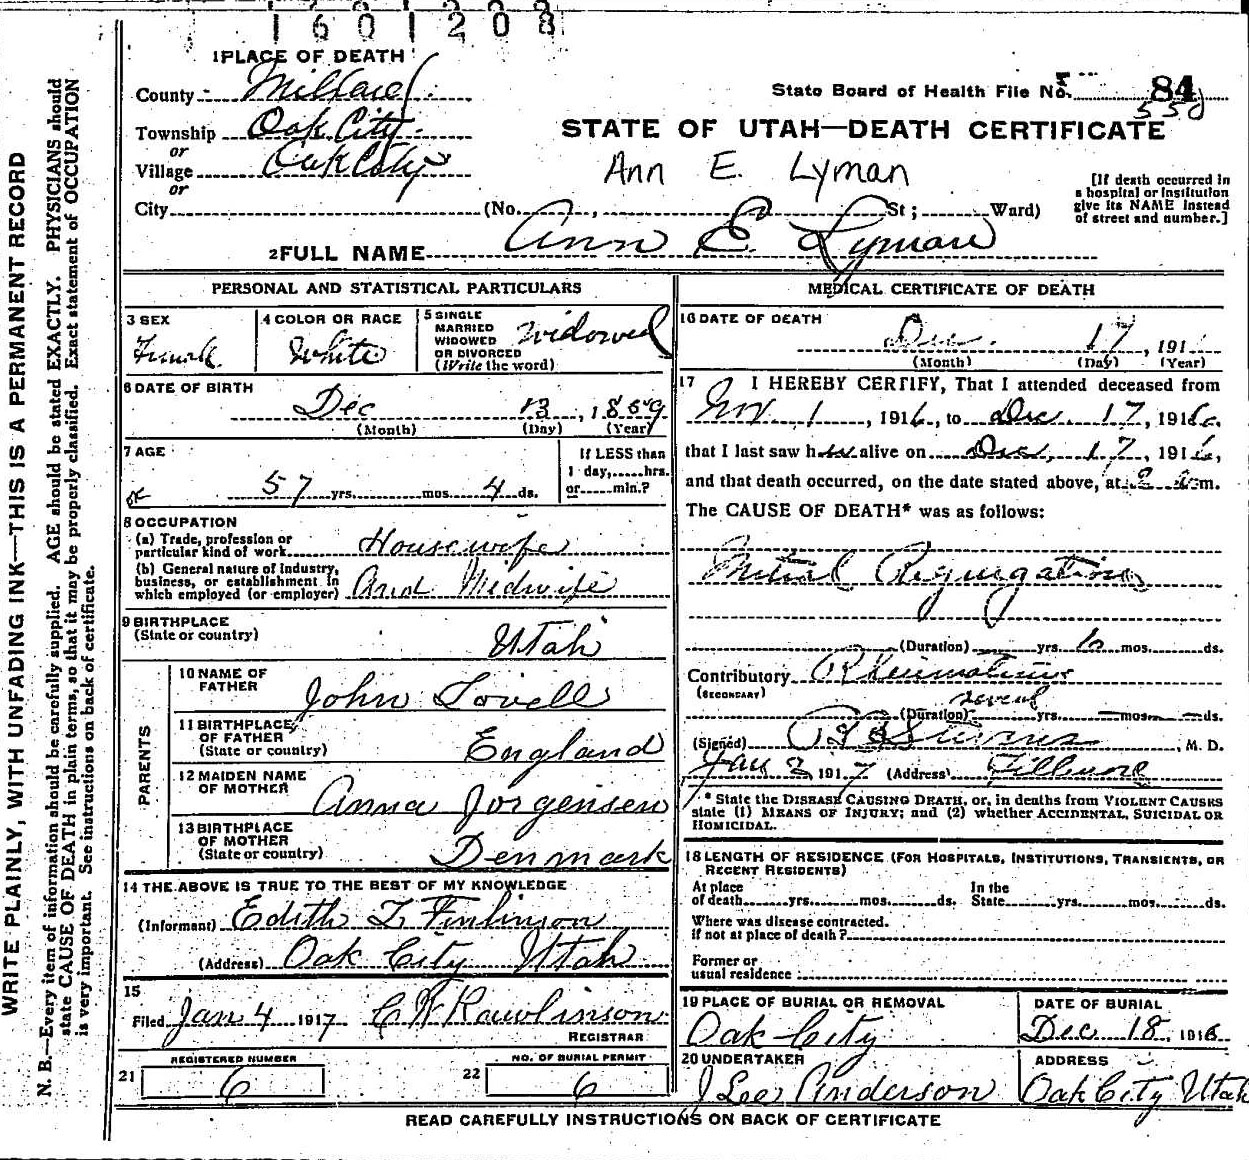 1601208
1 PLACE OF DEATH
County Millard
Township Oak City
or
Village Oak City
or
City (No. , St; Ward)
State Board of Health File No. 84
550
STATE OF UTAH—DEATH CERTIFICATE
Ann E. Lyman
[If death occurred in a hospital or institution give its NAME instead of street and number.]
2 FULL NAME Ann E. Lyman
PERSONAL AND STATISTICAL PARTICULARS
3 SEX Female
4 COLOR OR RACE White
5 SINGLE MARRIED WIDOWED OR DIVORCED (Write the word) Widowed
6 DATE OF BIRTH
Dec 13, 1859
(Month) (Day) (Year)
7 AGE
57 yrs. mos. 4 ds.
If LESS than 1 day, hrs. or min.?
8 OCCUPATION
(a) Trade, profession or particular kind of work Housewife
(b) General nature of industry, business, or establishment in which employed (or employer) And Midwife
9 BIRTHPLACE
(State or country) Utah
PARENTS
10 NAME OF FATHER John Lovell
11 BIRTHPLACE OF FATHER (State or country) England
12 MAIDEN NAME OF MOTHER Anna Jorgensen
13 BIRTHPLACE OF MOTHER (State or country) Denmark
14 THE ABOVE IS TRUE TO THE BEST OF MY KNOWLEDGE
(Informant) Edith L Finlinson
(Address) Oak City Utah
15
Filed Jan 4 1917 C W Rawlinson
REGISTRAR
21 REGISTERED NUMBER 6
22 NO. OF BURIAL PERMIT 6
MEDICAL CERTIFICATE OF DEATH
16 DATE OF DEATH
Dec. 17, 191
(Month) (Day) (Year)
17 I HEREBY CERTIFY, That I attended deceased from
Nov 1, 1916, to Dec 17, 1916,
that I last saw her alive on Dec, 17, 1916,
and that death occurred, on the date stated above, at 2 m.
The CAUSE OF DEATH* was as follows:
Mitral Regurgation
(Duration) yrs. mos. ds.
Contributory Rheumatism
(SECONDARY)
several
(Duration) yrs. — mos. — ds.
(Signed) Stevens, M. D.
Jan 2 1917 (Address) Fillmore
* State the DISEASE CAUSING DEATH, or, in deaths from VIOLENT CAUSES
state (1) MEANS OF INJURY; and (2) whether ACCIDENTAL, SUICIDAL OR
HOMICIDAL.
18 LENGTH OF RESIDENCE (FOR HOSPITALS, INSTITUTIONS, TRANSIENTS, OR
RECENT RESIDENTS)
At place of death yrs. mos. ds. In the State yrs. mos. ds.
Where was disease contracted.
if not at place of death?
Former or
usual residence
19 PLACE OF BURIAL OR REMOVAL
Oak City
DATE OF BURIAL
Dec 18, 1916
20 UNDERTAKER
J Lee Anderson
ADDRESS
Oak City Utah
READ CAREFULLY INSTRUCTIONS ON BACK OF CERTIFICATE
WRITE PLAINLY, WITH UNFADING INK—THIS IS A PERMANENT RECORD
N. B.—Every item of information should be carefully supplied. AGE should be stated EXACTLY. PHYSICIANS should
state CAUSE OF DEATH in plain terms, so that it may be properly classified. Exact statement of OCCUPATION
is very important. See instructions on back of certificate.